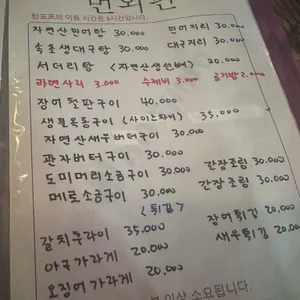 탄포포의 이용 시간은 2시간입니다.
자연산민어탕 30.000 민어지리 30.000
속초생대구탕 30.000 대구지리 30.000
서더리탕 <자연산생선뼈> 20.000
라면사리 3.000 수제비 3.000 공기밥 2.000
장어철판구이 40.000
생물옥돔구이 (사이즈차이) 35.000
자연산새우버터구이 30.000
관자버터구이 30.000
도미머리소금구이 30.000 간장조림 30.000
메로소금구이 30.000 간장조림 30.000
<튀김>
갈치후라이 35.000 장어튀김 20.000
아구가라게 20.000 새우튀김 20.000
오징어가라게 20.000
이상 소요됩니다.